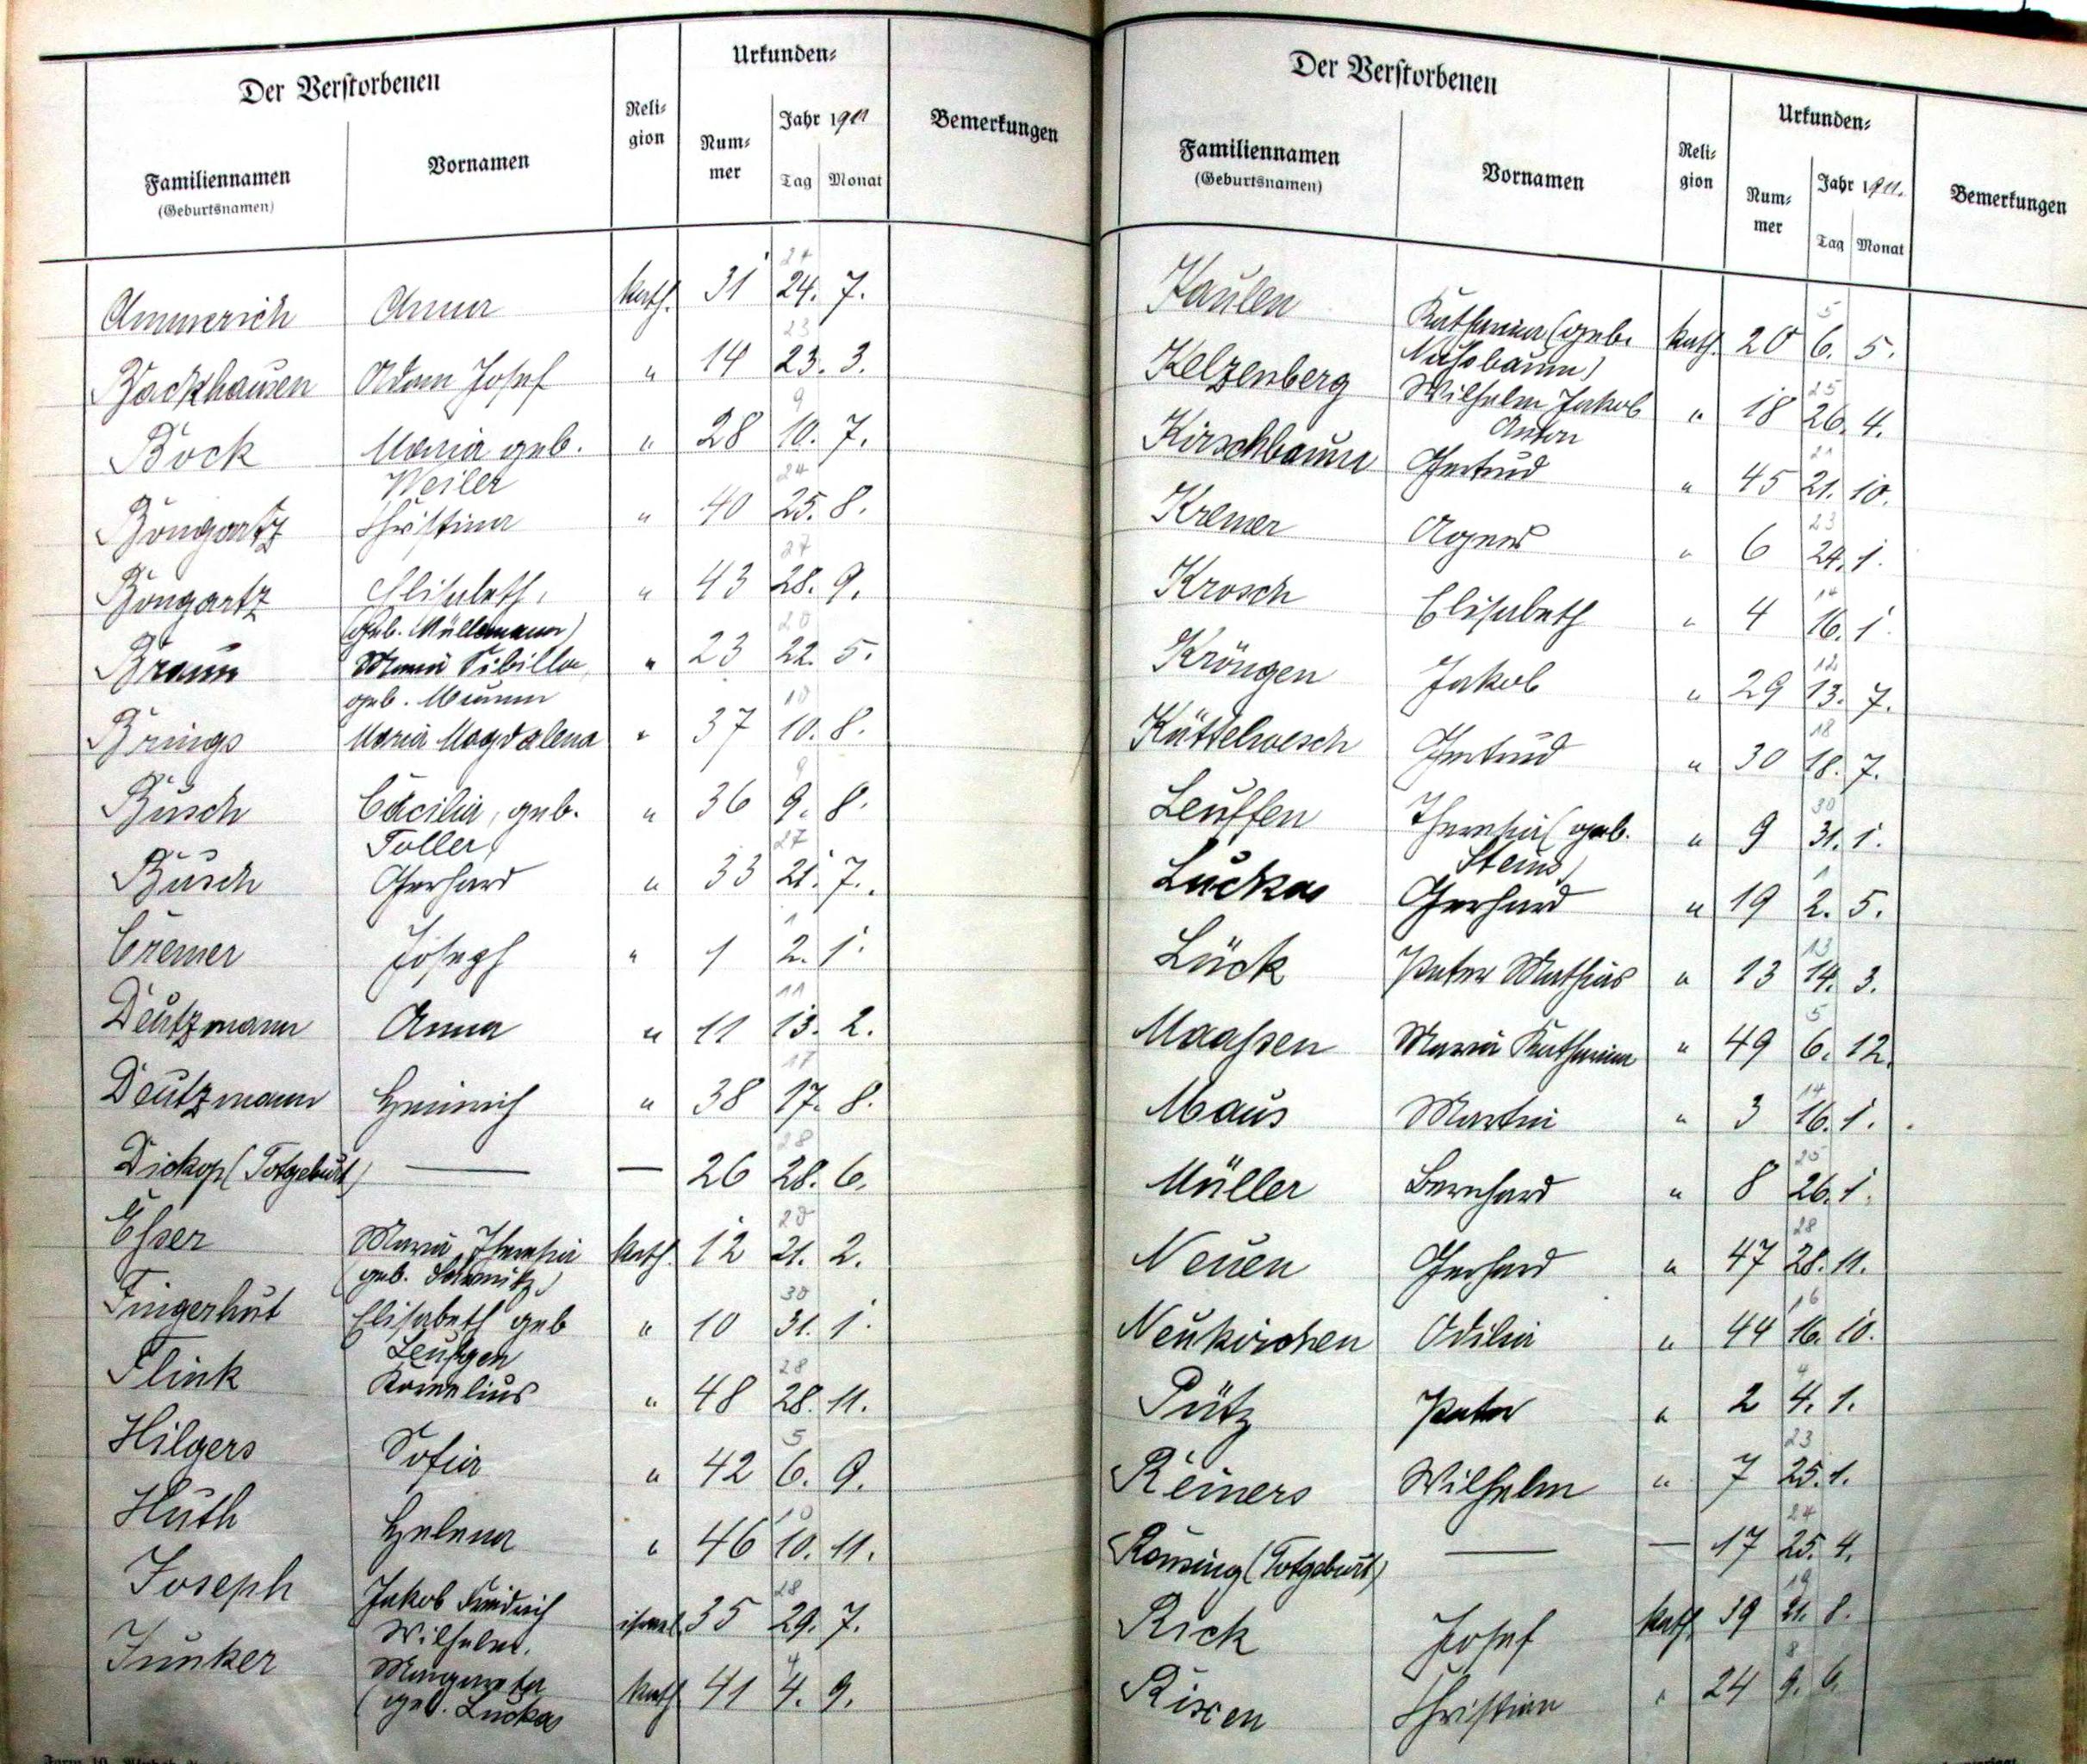 Der Verstorbenen
Familiennamen
(Geburtsnamen)
Vornamen
Reli-
gion
Urkunden-
Num-
mer
Jahr 1911
Tag Monat
Bemerkungen
24
Ammerich Anna kath. 31 24. 7.
23
Backhausen Adam Josef " 14 23. 3.
9
Bock Maria geb. " 28 10. 7.
Weiler
24
Bongartz Christina " 40 25. 8.
27
Bongartz Elisabeth, " 43 28. 9.
(geb. Müllemann)
20
Braun Maria Sibilla, " 23 22. 5.
geb.
10
Brings Maria Magdalena " 37 10. 8.
9
Busch Cäcilia, geb. " 36 9. 8.
Faller
27
Busch Gerhard " 33 7.
1
Cremer Joseph " 1 2. 1.
11
Deutzmann Anna " 11 13. 2.
17
Deutzmann Heinrich " 38 17. 8.
28
Dickop (Totgeburt) — — 26 28. 6.
20
Esser Maria Theresia kath. 12 21. 2.
(geb.
30
Fingerhut Elisabeth geb " 10 31. 1.
28
Flink Kornelius " 48 28. 11.
5
Hilgers Sofia " 42 6. 9.
10
Huth Helena " 46 10. 11.
28
Joseph Jakob Friedrich israel. 35 29. 7.
Wilhelm.
4
Junker Margareta kath. 41 4. 9.
(geb. Luckas
Der Verstorbenen
Familiennamen
(Geburtsnamen)
Vornamen
Reli-
gion
Urkunden-
Num-
mer
Jahr 1911.
Tag Monat
Bemerkungen
5
Kaulen Katharina (geb. kath. 20 6. 5.
Nußbaum)
25
Kelzenberg Wilhelm Jakob " 18 26. 4.
Anton
21
Kirschbaum Gertrud " 45 21. 10.
23
Kremer Agnes " 6 24. 1.
14
Krosch Elisabeth " 4 16. 1.
12
Kröngen Jakob " 29 13. 7.
18
Küttelwesch Gertrud " 30 18. 7.
30
Leuffen Theresia (geb. " 9 31. 1.
Steins)
1
Luckas Gerhard " 19 2. 5.
13
Lück Peter Mathias " 13 14. 3.
5
Maaßen Maria Katharina " 49 6. 12.
14
Maus Martin " 3 16. 1.
25
Müller Bernhard " 8 26. 1.
28
Neuen Gerhard " 47 28. 11.
16
Neukirchen Odilia " 44 16. 10.
4
Pütz Peter " 2 4. 1.
23
Reiners Wilhelm " 7 25. 1.
24
(Totgeburt) — — 17 25. 4.
19
Rick Josef kath. 39 21. 8.
8
Rixen Christian " 24 9. 6.